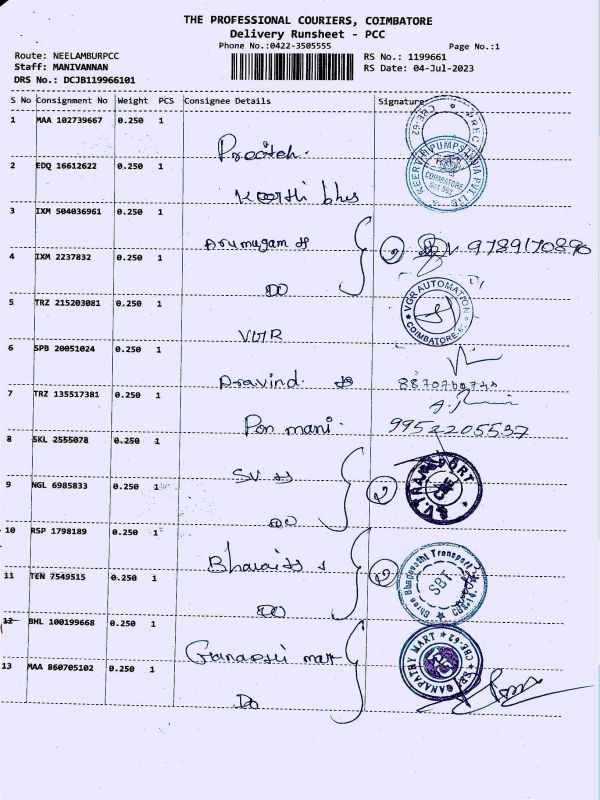 THE PROFESSIONAL COURIERS, COIMBATORE
Delivery Runsheet - PCC
Phone No.:0422-3505555
Page No.:1
Route: NEELAMBURPCC
RS No.: 1199661
Staff: MANIVANNAN
RS Date: 04-Jul-2023
DRS No.: DCJB119966101
S No Consignment No Weight PCS Consignee Details Signature
1 MAA 102739667 0.250 1
2 EDQ 16612622 0.250 1
Keerthi
KEERTHI PUMPS INDIA PVT LTD
COIMBATORE
3 IXM 504036961 0.250 1
Arumugam
9789170890
4 IXM 2237832 0.250 1
DO
5 TRZ 215203081 0.250 1
VGR
VGR AUTOMATION
COIMBATORE
6 SPB 20051024 0.250 1
Aravind
7 TRZ 135517381 0.250 1
Pon mani.
9952205537
8 SKL 2555078 0.250 1
SV
S.V. TRANSPORT
9 NGL 6985833 0.250 1
DO
10 RSP 1798189 0.250 1
Shree Bhagavathi Transport
SBT
11 TEN 7549515 0.250 1
DO
12 BHL 100199668 0.250 1
mart
SRI GANAPATHY MART
CBE-62
13 MAA 860705102 0.250 1
Do